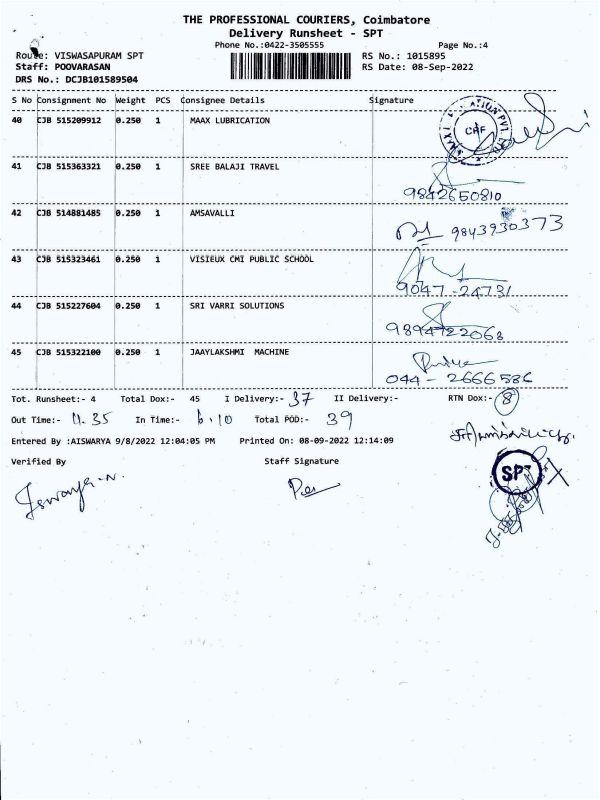 THE PROFESSIONAL COURIERS, Coimbatore
Delivery Runsheet - SPT
Phone No.:0422-3505555 Page No.:4
Route: VISWASAPURAM SPT RS No.: 1015895
Staff: POOVARASAN RS Date: 08-Sep-2022
DRS No.: DCJB101589504
S No Consignment No Weight PCS Consignee Details Signature
40 CJB 515209912 0.250 1 MAAX LUBRICATION
41 CJB 515363321 0.250 1 SREE BALAJI TRAVEL
9842650810
42 CJB 514881485 0.250 1 AMSAVALLI
9843930373
43 CJB 515323461 0.250 1 VISIEUX CMI PUBLIC SCHOOL
9047-24731
44 CJB 515227604 0.250 1 SRI VARRI SOLUTIONS
9894722068
45 CJB 515322100 0.250 1 JAAYLAKSHMI MACHINE
044-2666586
Tot. Runsheet:- 4 Total Dox:- 45 I Delivery:- 37 II Delivery:- RTN Dox:- 8
Out Time:- 11.35 In Time:- 6.10 Total POD:- 39
Entered By :AISWARYA 9/8/2022 12:04:05 PM Printed On: 08-09-2022 12:14:09
Verified By Staff Signature
SPT